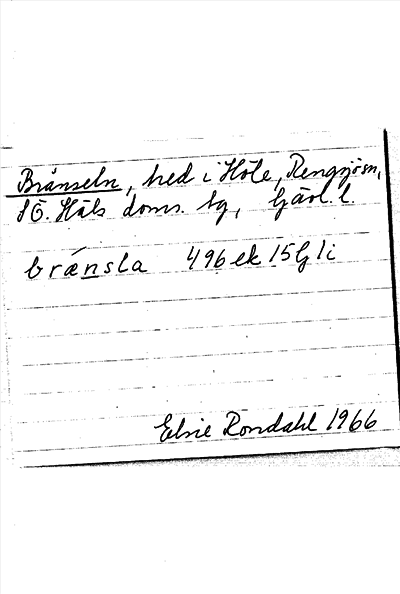 Bränseln, hed i Höle, Rengsjö sn,
SÖ. Häls doms. tg, Gävl. l.
brænsla 496 ek 15G 1i
Elsie Rondahl 1966